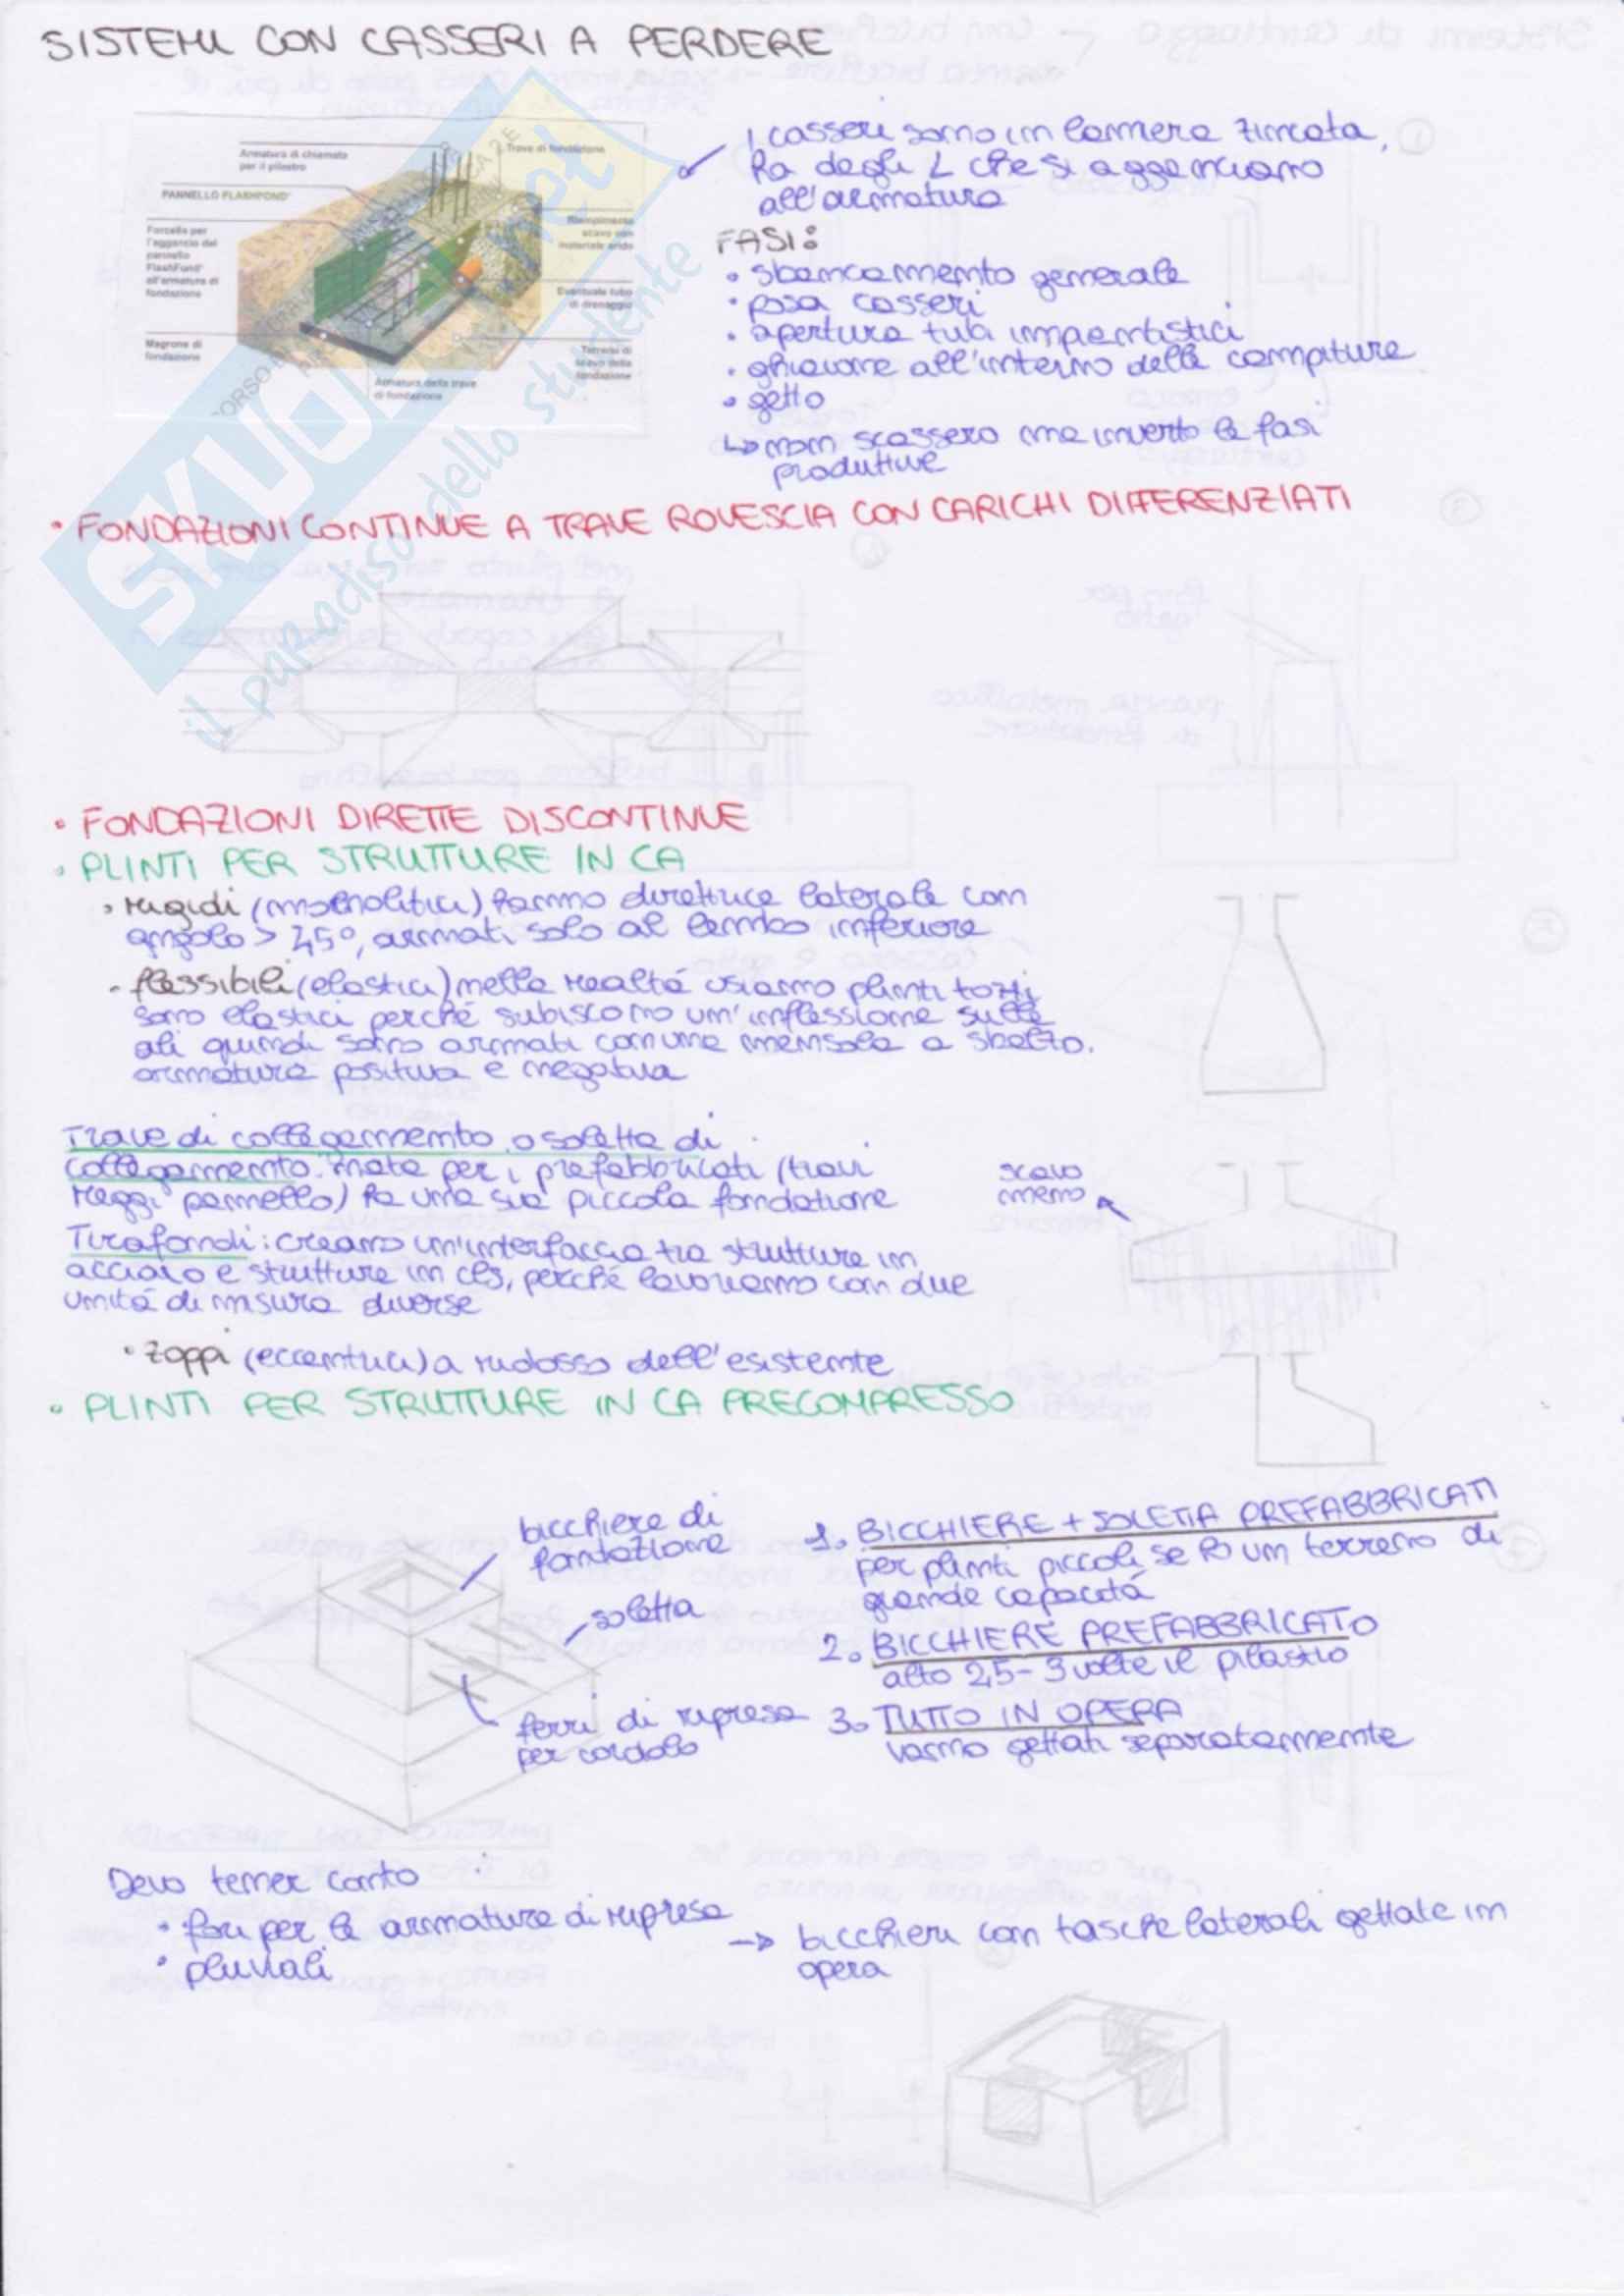 SISTEMI CON CASSERI A PERDERE
Armatura di chiamata
per il pilastro
Trave di fondazione
PANNELLO FLASHFOND
Forcella per
l'aggancio del
pannello
FlashFond
all'armatura di
fondazione
Riempimento
scavo con
materiale arido
Eventuale tubo
di drenaggio
Magrone di
fondazione
Terreno di
scavo della
fondazione
Armatura della trave
di fondazione
SKUOLA.net
il paradiso dello studente
I casseri sono in lamiera zincata,
ha degli L che si agganciano
all'armatura
FASI:
• sbancamento generale
• posa casseri
• apertura tubi impiantistici
• ghiaione all'interno delle
• getto
↳ non scassero ma inverto le fasi
produttive
• FONDAZIONI CONTINUE A TRAVE ROVESCIA CON CARICHI DIFFERENZIATI
• FONDAZIONI DIRETTE DISCONTINUE
• PLINTI PER STRUTTURE IN CA
• rigidi (monolitici) hanno direttrice laterale con
angolo > 45°, armati solo al lembo inferiore
• flessibili (elastici) nella realtá usiamo plinti tozzi
sono elastici perché subiscono un'inflessione sulle
ali quindi sono armati con una mensola a sbalzo.
armatura positiva e negativa
Trave di collegamento o soletta di
collegamento: nata per i prefabbricati (travi
reggi pannello) ha una sua piccola fondazione
scavo
meno
Tirafondi: creano un'interfaccia tra strutture in
acciaio e strutture in cls, perché lavorano con due
unitá di misura diverse
• zoppi (eccentrici) a ridosso dell'esistente
• PLINTI PER STRUTTURE IN CA PRECOMPRESSO
bicchiere di
fondazione
soletta
ferri di ripresa
per cordolo
1. BICCHIERE + SOLETTA PREFABBRICATI
per plinti piccoli se ho un terreno di
grande capacitá
2. BICCHIERE PREFABBRICATO
alto 2,5 - 3 volte il pilastro
3. TUTTO IN OPERA
vanno gettati separatamente
Devo tener conto
• fori per le armature di ripresa
• pluviali
→ bicchieri con tasche laterali gettate in
opera